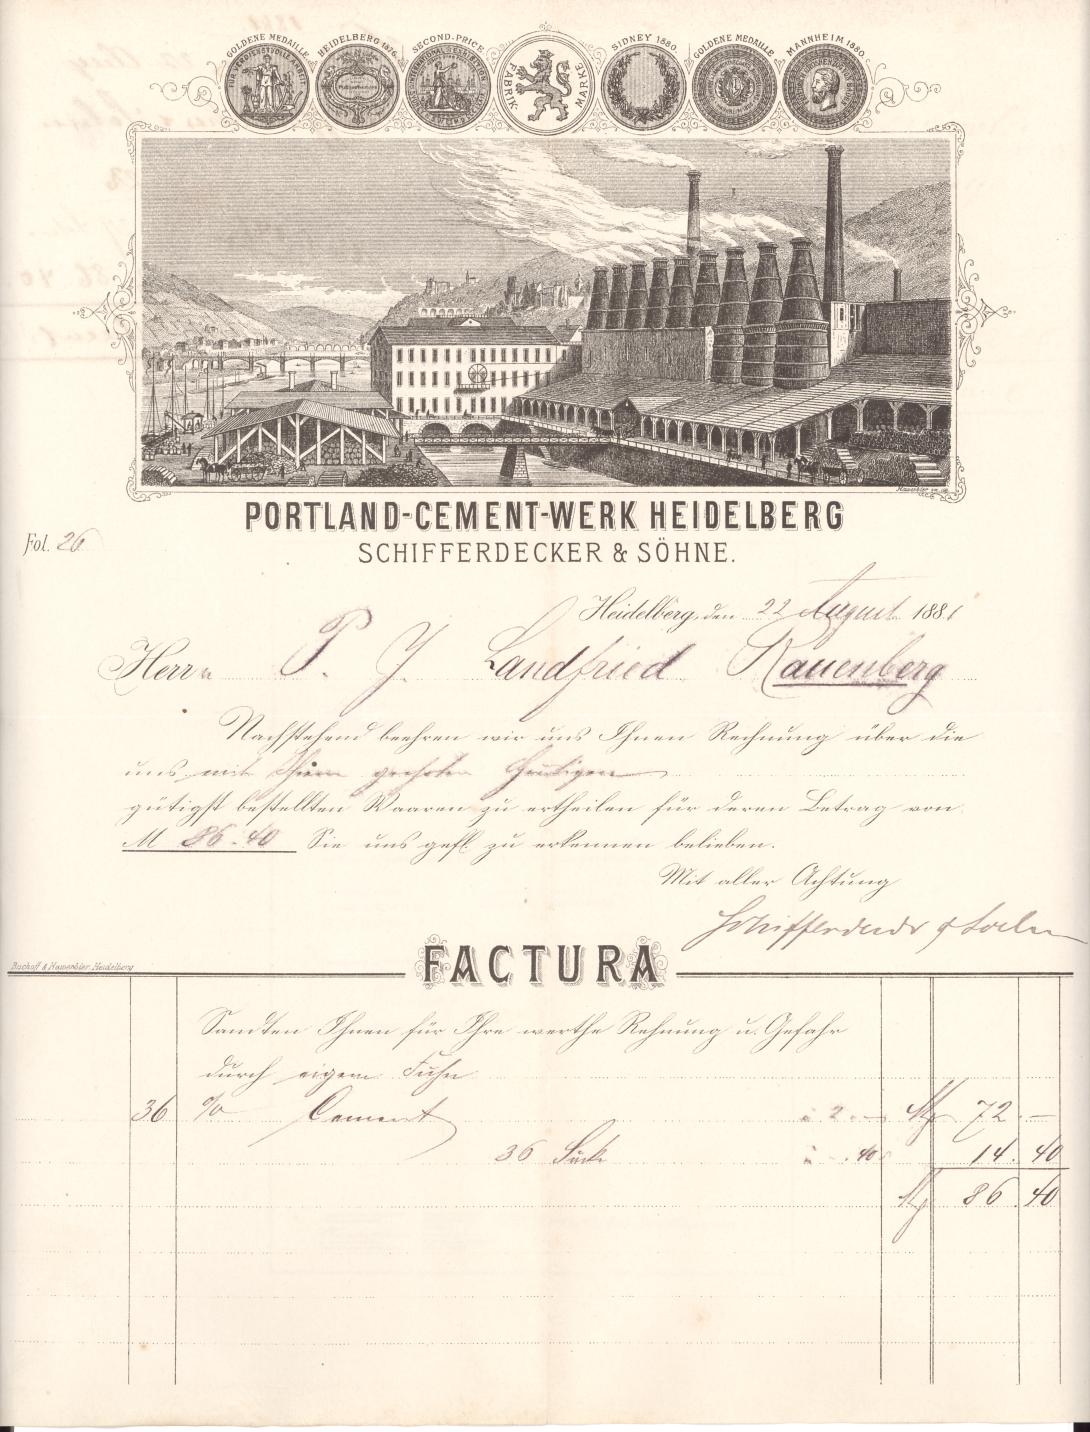 GOLDENE MEDAILLE HEIDELBERG 1876 SECOND-PRICE SIDNEY 1880 GOLDENE MEDAILLE MANNHEIM 1880
FÜR VERDIENSTVOLLE
INTERNATIONAL EXHIBITION
FABRIK MARKE
PORTLAND-CEMENT-WERK HEIDELBERG
Fol. 26
SCHIFFERDECKER & SÖHNE.
Heidelberg, den 22 August 1881
Herrn P. J. Landfried Rauenberg
Nachstehend beehren wir uns Ihnen Rechnung über die
uns mit Ihrem geehrten Heutigen
gütigst bestellten Waaren zu ertheilen für deren Betrag von
M 86.40 Sie uns gefl. zu erkennen belieben.
Mit aller Achtung
Schifferdecker & Soehne
Buchoff & Hamerbier, Heidelberg
FACTURA
Sandten Ihnen für Ihre werthe Rechnung u. Gefahr
durch eigene Fuhre
36 % Cement à 2.— M 72.—
36 Säcke à —.40 14.40
M 86.40